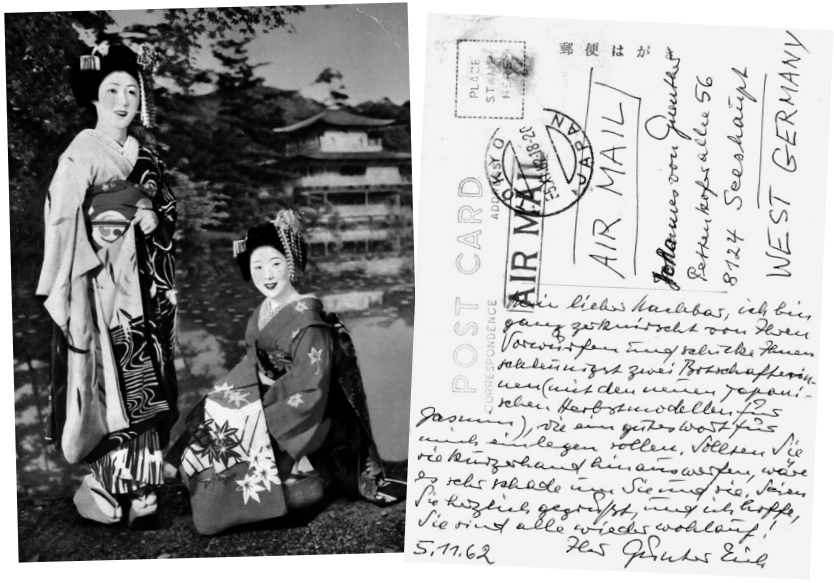 郵便はが
PLACE
STAMP
HERE
TOKYO
JAPAN
5.XI.62.18-20
AIR MAIL
POST CARD
CORRESPONDENCE
ADDRESS
AIR MAIL
Johannes von Guenther
Pettenkoferallee 56
8124 Seeshaupt
WEST GERMANY
Mein lieber Nachbar, ich bin
ganz zerknirscht von Ihren
Vorwürfen und schicke Ihnen
schleunigst zwei Botschafterin-
nen (mit den neuen japani-
schen Herbstmodellen für
Jasmin), die ein gutes Wort für
mich einlegen sollen. Sollten Sie
sie kurzerhand hinauswerfen, wäre
es sehr schade um Sie und sie. Seien
Sie herzlich gegrüßt, und ich hoffe,
Sie sind alle wieder wohlauf!
5.11.62 Ihr Günter Eich